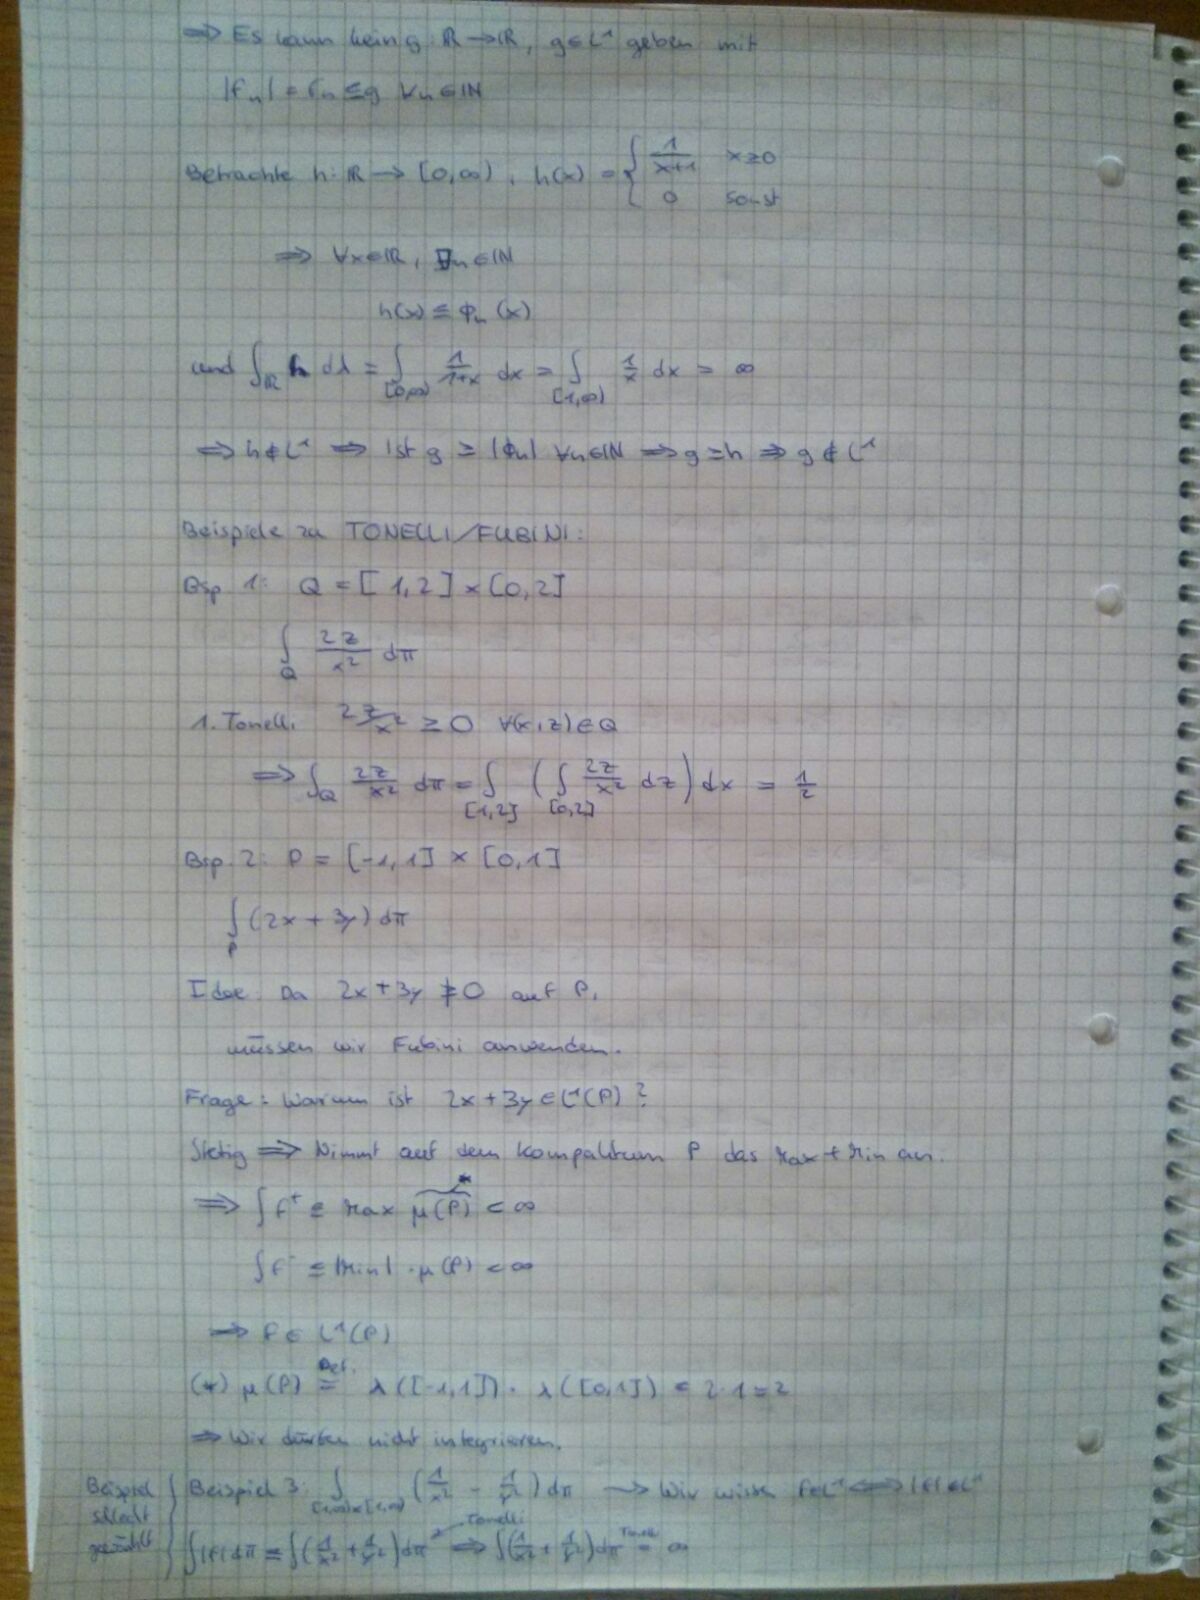 ⇒ Es kann kein g: ℝ → ℝ, g ∈ L¹ geben mit
|fₙ| = fₙ ≤ g ∀n ∈ ℕ
Betrachte h: ℝ → [0,∞), h(x) = { 1/(x+1) x≥0
0 sonst
⇒ ∀x∈ℝ, ∀n∈ℕ
h(x) ≤ ϕₙ(x)
und ∫_ℝ h dλ = ∫_[0,∞) 1/(1+x) dx = ∫_[1,∞) 1/x dx = ∞
⇒ h ∉ L¹ ⇒ Ist g ≥ |ϕₙ| ∀n∈ℕ ⇒ g ≥ h ⇒ g ∉ L¹
Beispiele zu TONELLI/FUBINI:
Bsp. 1: Q = [1,2] × [0,2]
∫_Q 2z/x² dπ
1. Tonelli 2z/x² ≥ 0 ∀(x,z) ∈ Q
⇒ ∫_Q 2z/x² dπ = ∫_[1,2] (∫_[0,2] 2z/x² dz) dx = 1/2
Bsp. 2: P = [-1,1] × [0,1]
∫_P (2x + 3y) dπ
Idee: Da 2x + 3y ≱ 0 auf P,
müssen wir Fubini anwenden.
Frage: Warum ist 2x + 3y ∈ L¹(P)?
Stetig ⇒ Nimmt auf dem Kompaktum P das Max + Min an.
⇒ ∫f⁺ ≤ Max μ(P) < ∞ *
∫f⁻ ≤ |Min| · μ(P) < ∞
⇒ f ∈ L¹(P)
(*) μ(P) =^Def. λ([-1,1]) · λ([0,1]) = 2·1 = 2
⇒ Wir dürfen nicht integrieren.
Beispiel schlecht gewählt { Beispiel 3: ∫_[1,∞)×[1,∞) (1/x² - 1/y²) dπ → Wir wissen f∈L¹ ⇔ |f|∈L¹
∫|f| dπ ≤ ∫(1/x² + 1/y²) dπ ← Tonelli ⇒ ∫(1/x² + 1/y²) dπ =^Tonelli ∞